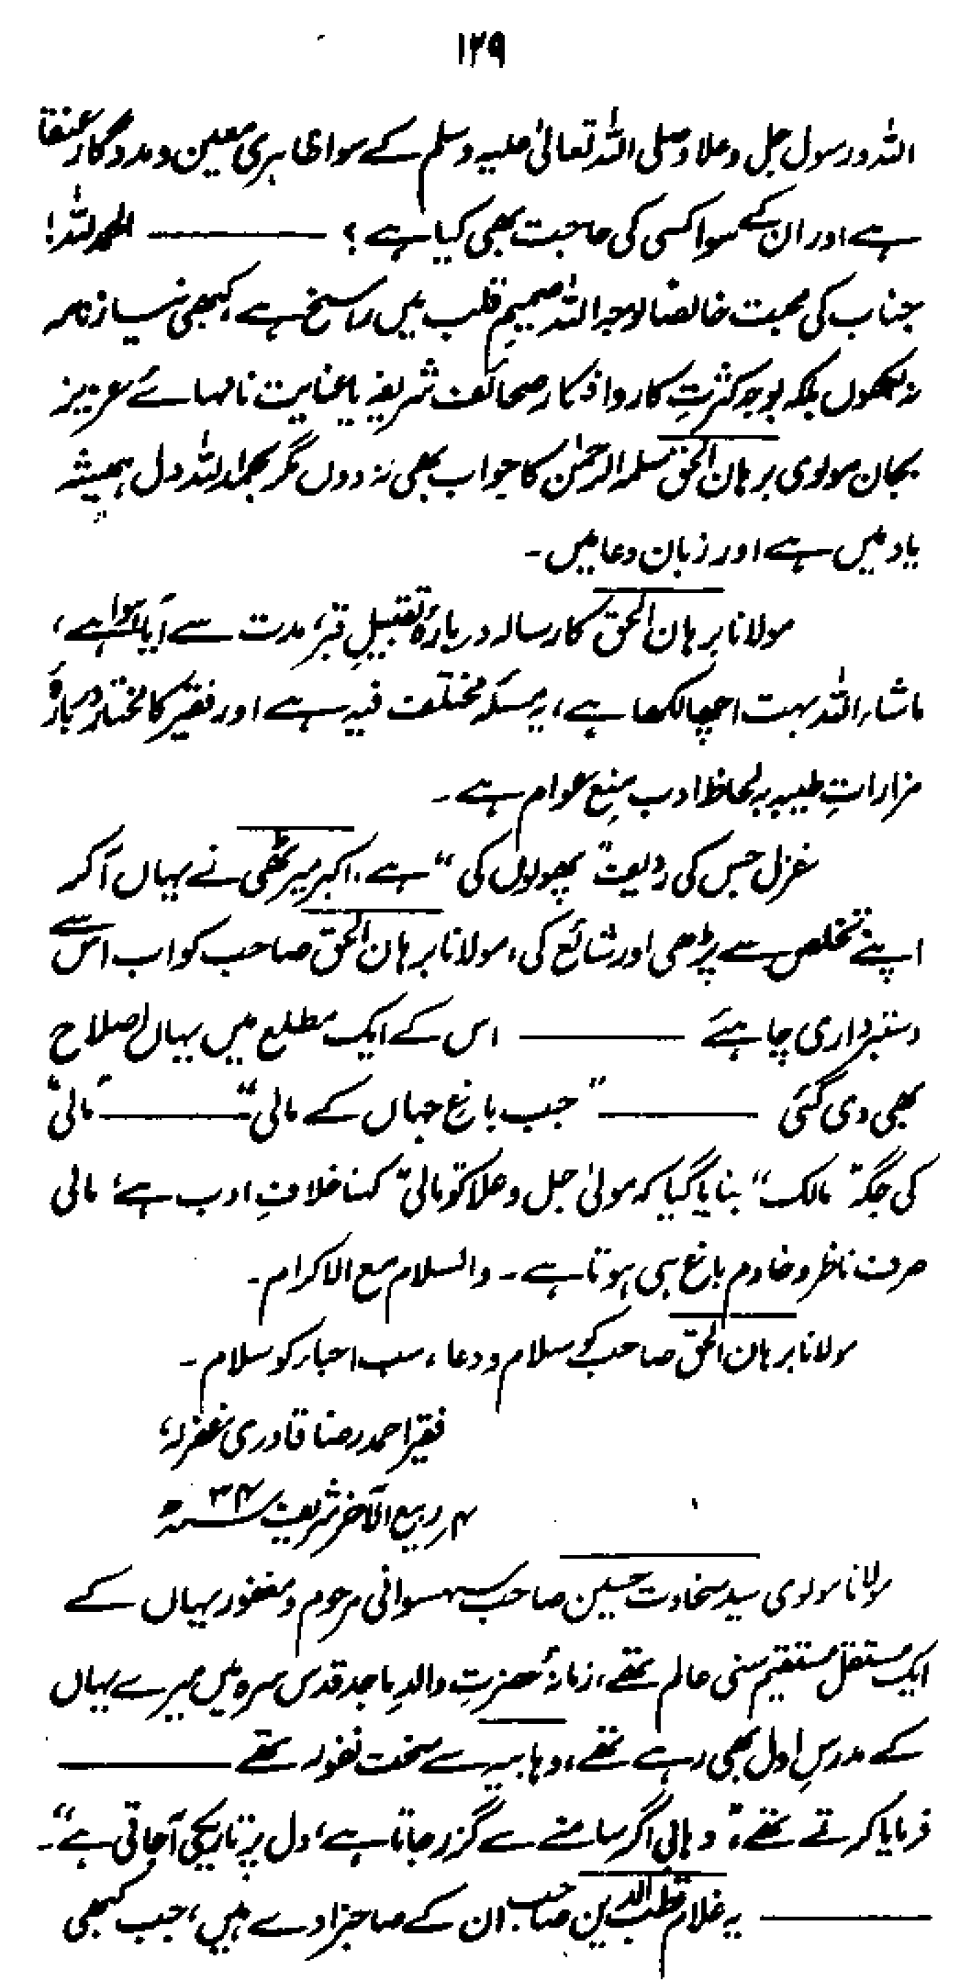 ۱۲۹
اللہ ورسول جل وعلا وصلی اللہ تعالیٰ علیہ وسلم کے سوا ظاہری معین و مددگار عنقا
ہے اور ان کے سوا کسی کی حاجت بھی کیا ہے ؟ ——— الحمدللہ!
جناب کی محبت خالصًا لوجہ اللہ صمیمِ قلب میں راسخ ہے، کبھی نیاز نامہ
نہ لکھوں بلکہ بوجہ کثرتِ کار و افکار صحائف شریفہ یا عنایت نامہائے عزیز
بجان مولوی برہان الحق سلمہ الرحمٰن کا جواب بھی نہ دوں مگر بحمد اللہ دل ہمیشہ
یاد میں ہے اور زبان دعا میں ۔
مولانا برہان الحق کا رسالہ دربارۂ تقبیلِ قبر، مدت سے آیا ہوا ہے،
ماشاء اللہ بہت اچھا لکھا ہے، یہ مسئلہ مختلف فیہ ہے اور فقیر کا مختار دربارۂ
مزاراتِ طیبہ بہ لحاظ ادب منعِ عوام ہے ۔
غزل جس کی ردیف ”پھولوں کی“ ہے، اکبر میرٹھی نے یہاں آکر
اپنے تخلص سے پڑھی اور شائع کی، مولانا برہان الحق صاحب کو اب اس سے
دستبرداری چاہئے ——— اس کے ایک مطلع میں یہاں اصلاح
بھی دی گئی ——— ”جب باغِ جہاں کے مالی“ ——— ”مالی“
کی جگہ ”مالک“ بنایا گیا کہ مولیٰ جل وعلا کو ”مالی“ کہنا خلافِ ادب ہے، مالی
صرف ناظر و خادم باغ ہی ہوتا ہے ۔ والسلام مع الاکرام ۔
مولانا برہان الحق صاحب کو سلام و دعا، سب احباب کو سلام ۔
فقیر احمد رضا قادری غفرلہ،
۴ ربیع الآخر شریف ۳۴ سنہ ھ
مولانا مولوی سید سخاوت حسین صاحب سہسوانی مرحوم و مغفور یہاں کے
ایک مستقل مستقیم سنی عالم تھے، زمانۂ حضرتِ والدِ ماجد قدس سرہ میں میرے یہاں
کے مدرسِ اول بھی رہے تھے، وہابیہ سے سخت نفور تھے ———
فرمایا کرتے تھے، ”وہابی اگر سامنے سے گزر جاتا ہے، دل پر تاریکی آجاتی ہے“ ۔
——— یہ غلام قطب الدین صاحب ان کے صاحبزادے ہیں، جب کبھی